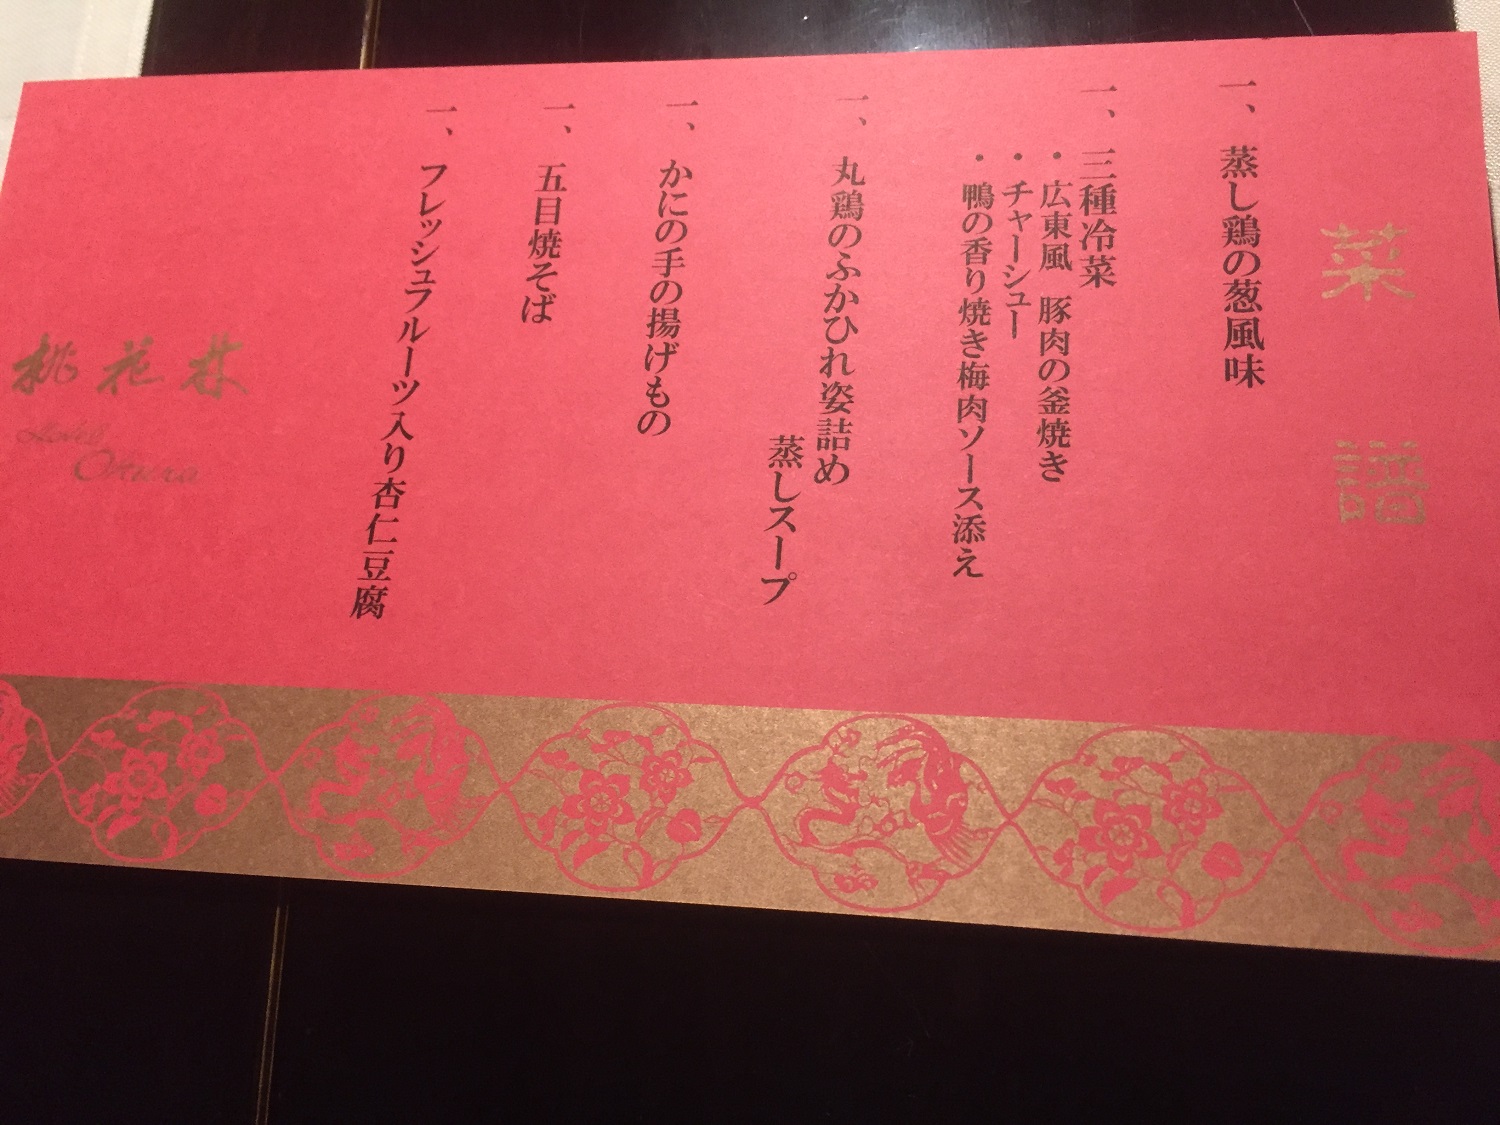 菜譜
一、蒸し鶏の葱風味
一、三種冷菜
・広東風　豚肉の釜焼き
・チャーシュー
・鴨の香り焼き梅肉ソース添え
一、丸鶏のふかひれ姿詰め
蒸しスープ
一、かにの手の揚げもの
一、五目焼そば
一、フレッシュフルーツ入り杏仁豆腐
桃花林
Hotel
Okura